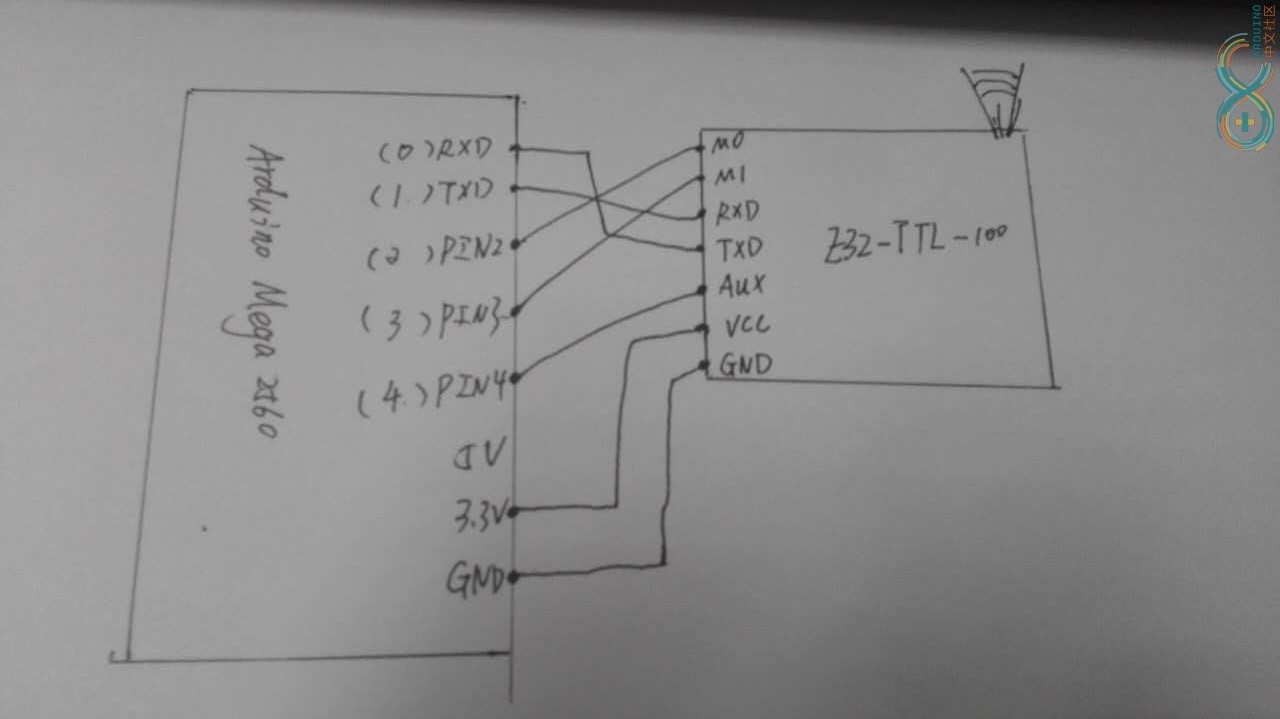 Arduino Mega 2560
(0)RXD
(1.)TXD
(2)PIN2
(3)PIN3
(4.)PIN4
5V
3.3V
GND
M0
M1
RXD
TXD
AUX
VCC
GND
E32-TTL-100
ARDUINO
中文社区